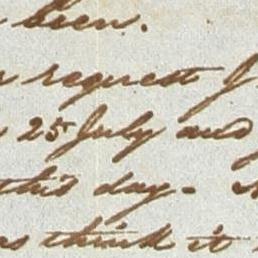 been.
request I
25 July and
this day.
think it